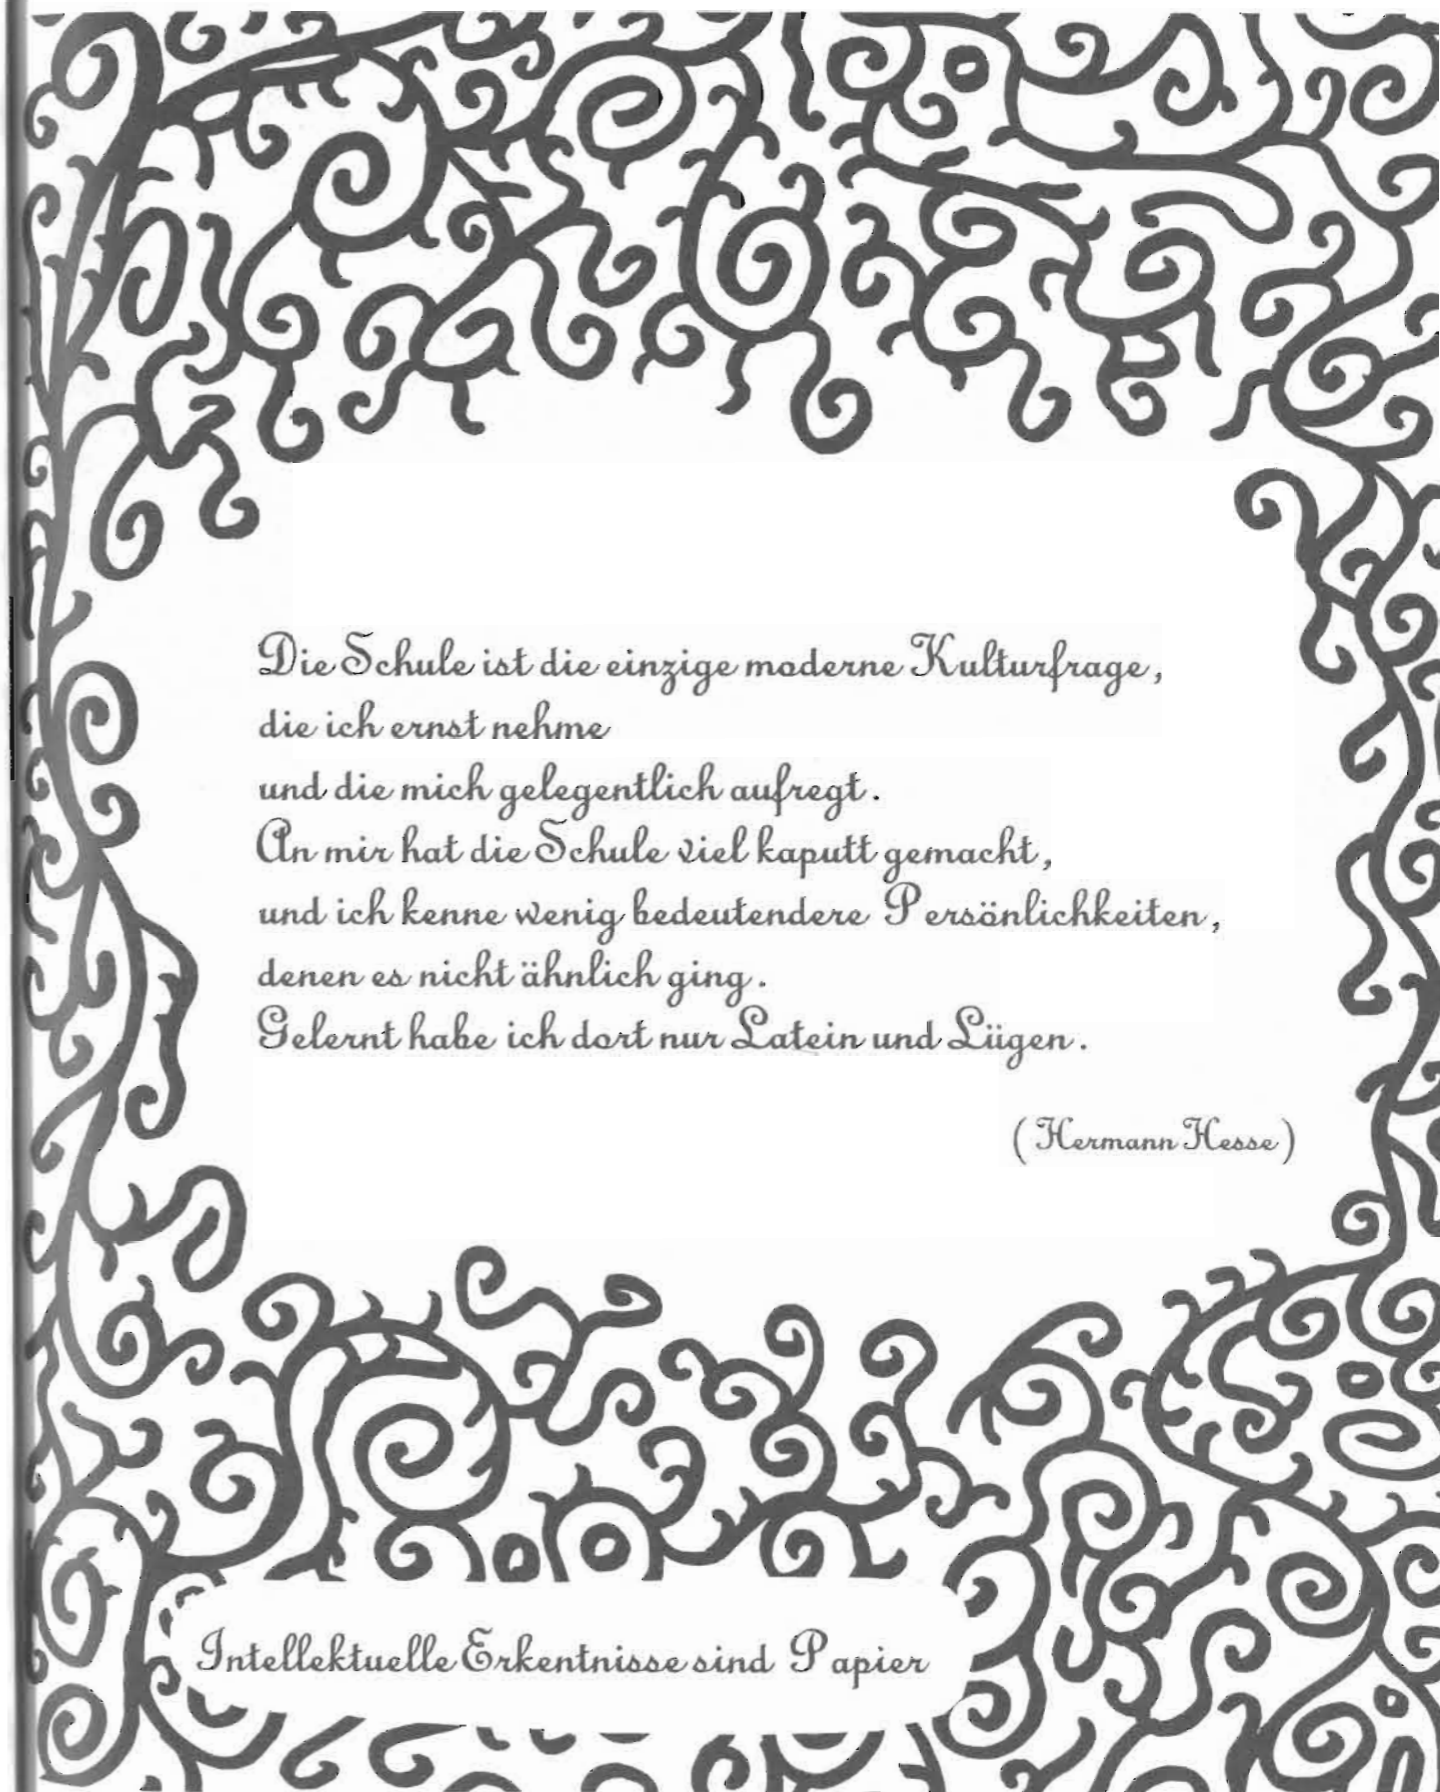 Die Schule ist die einzige moderne Kulturfrage,
die ich ernst nehme
und die mich gelegentlich aufregt.
An mir hat die Schule viel kaputt gemacht,
und ich kenne wenig bedeutendere Persönlichkeiten,
denen es nicht ähnlich ging.
Gelernt habe ich dort nur Latein und Lügen.
(Hermann Hesse)
Intellektuelle Erkentnisse sind Papier